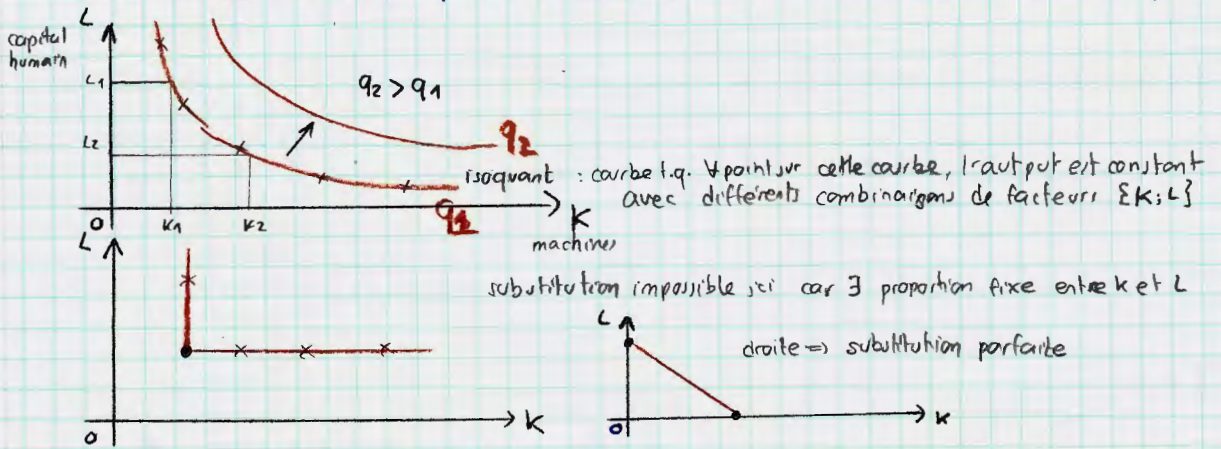 L
capital
humain
L1
q2 > q1
L2
q2
isoquant : courbe t.q. ∀ point sur cette courbe, l'output est constant
avec différents combinaisons de facteurs {K;L}
0
K1
K2
q1
K
machines
L
substitution impossible ici car ∃ proportion fixe entre K et L
L
droite => substitution parfaite
0
K
0
K